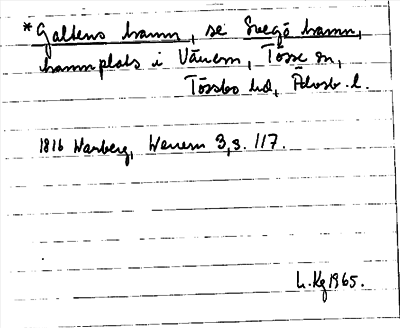 *Galtens hamn, se Suegö hamn,
hamnplats i Vänern, Tösse sn,
Tössbo hd, Älvsb. l.
1816 Warberg, Wenern 3, s. 117.
L. Kg 1965.